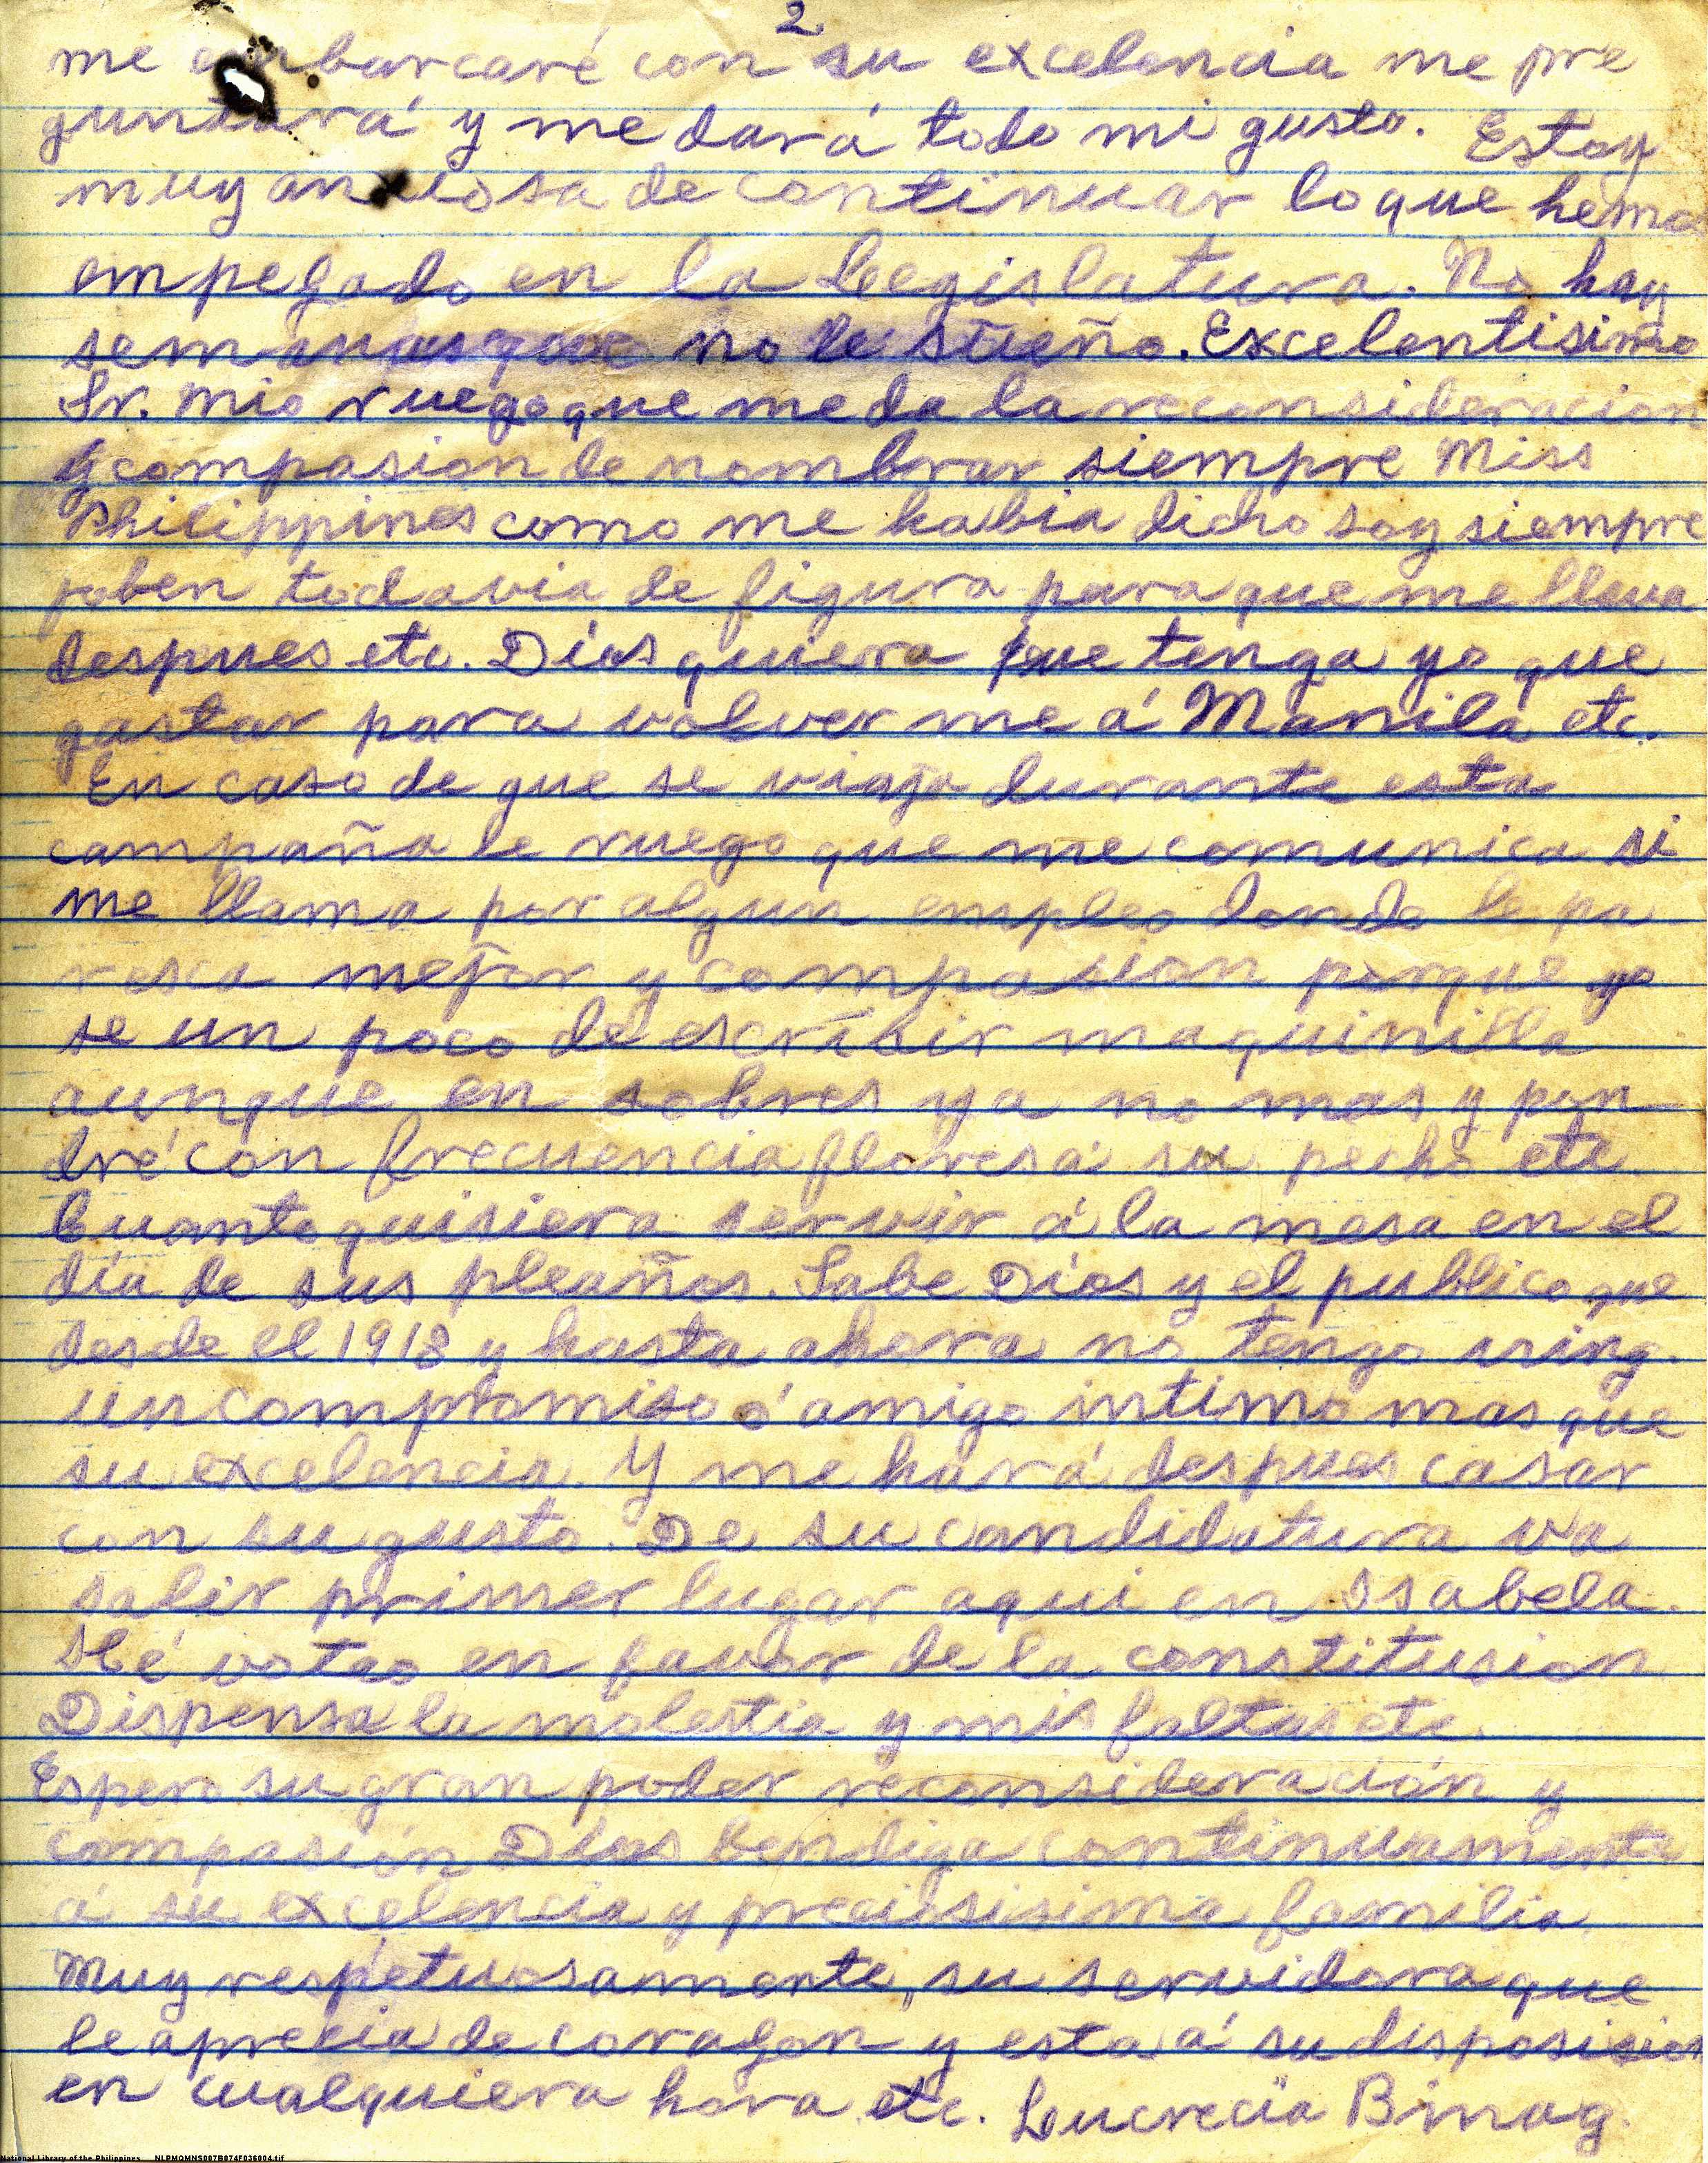 2
me embarcaré con su excelencia me pre
guntará y me dará todo mi gusto. Estoy
muy anciosa de continuar lo que hemo
empezado en la Legislatura. No hay
semanas que no le sueño. Excelentisimo
Sr. mio ruego que me da la reconsideracion
y compasion de nombrar siempre Miss
Philippines como me habia dicho soy siempre
joben todavia de figura para que me lleva
despues etc. Dios quiera que tenga yo que
gastar para volver me á Manila etc.
En caso de que se viaja durante esta
campaña le ruego que me comunica si
me llama por algun empleo donde le pa
resca mejor y compasion porque yo
se un poco de escribir maquinilla
aunque en sobres ya no mas y pon
dré con frecuencia flores á su pecho etc
Cuanto quisiera servir á la mesa en el
dia de sus pleaños. Sabe Dios y el publico que
desde el 1918 y hasta ahora no tengo
un compromiso ó amigo intimo mas que
su excelencia. Y me hará despues casar
con su gusto. De su candidatura va
salir primer lugar aqui en Isabela.
Hé votao en favor de la constitusion
Dispensa la molestia y mis faltas etc.
Espero su gran poder reconsideración y
compasión Dios bendiga continuamente
á su excelencia y preciosisima familia
Muy respetuosamente, su servidora que
le aprecia de corazon y esta á su disposision
en cualquiera hora etc. Lucrecia Binag.
National Library of the Philippines NLPMQMNS007B074F036004.tif